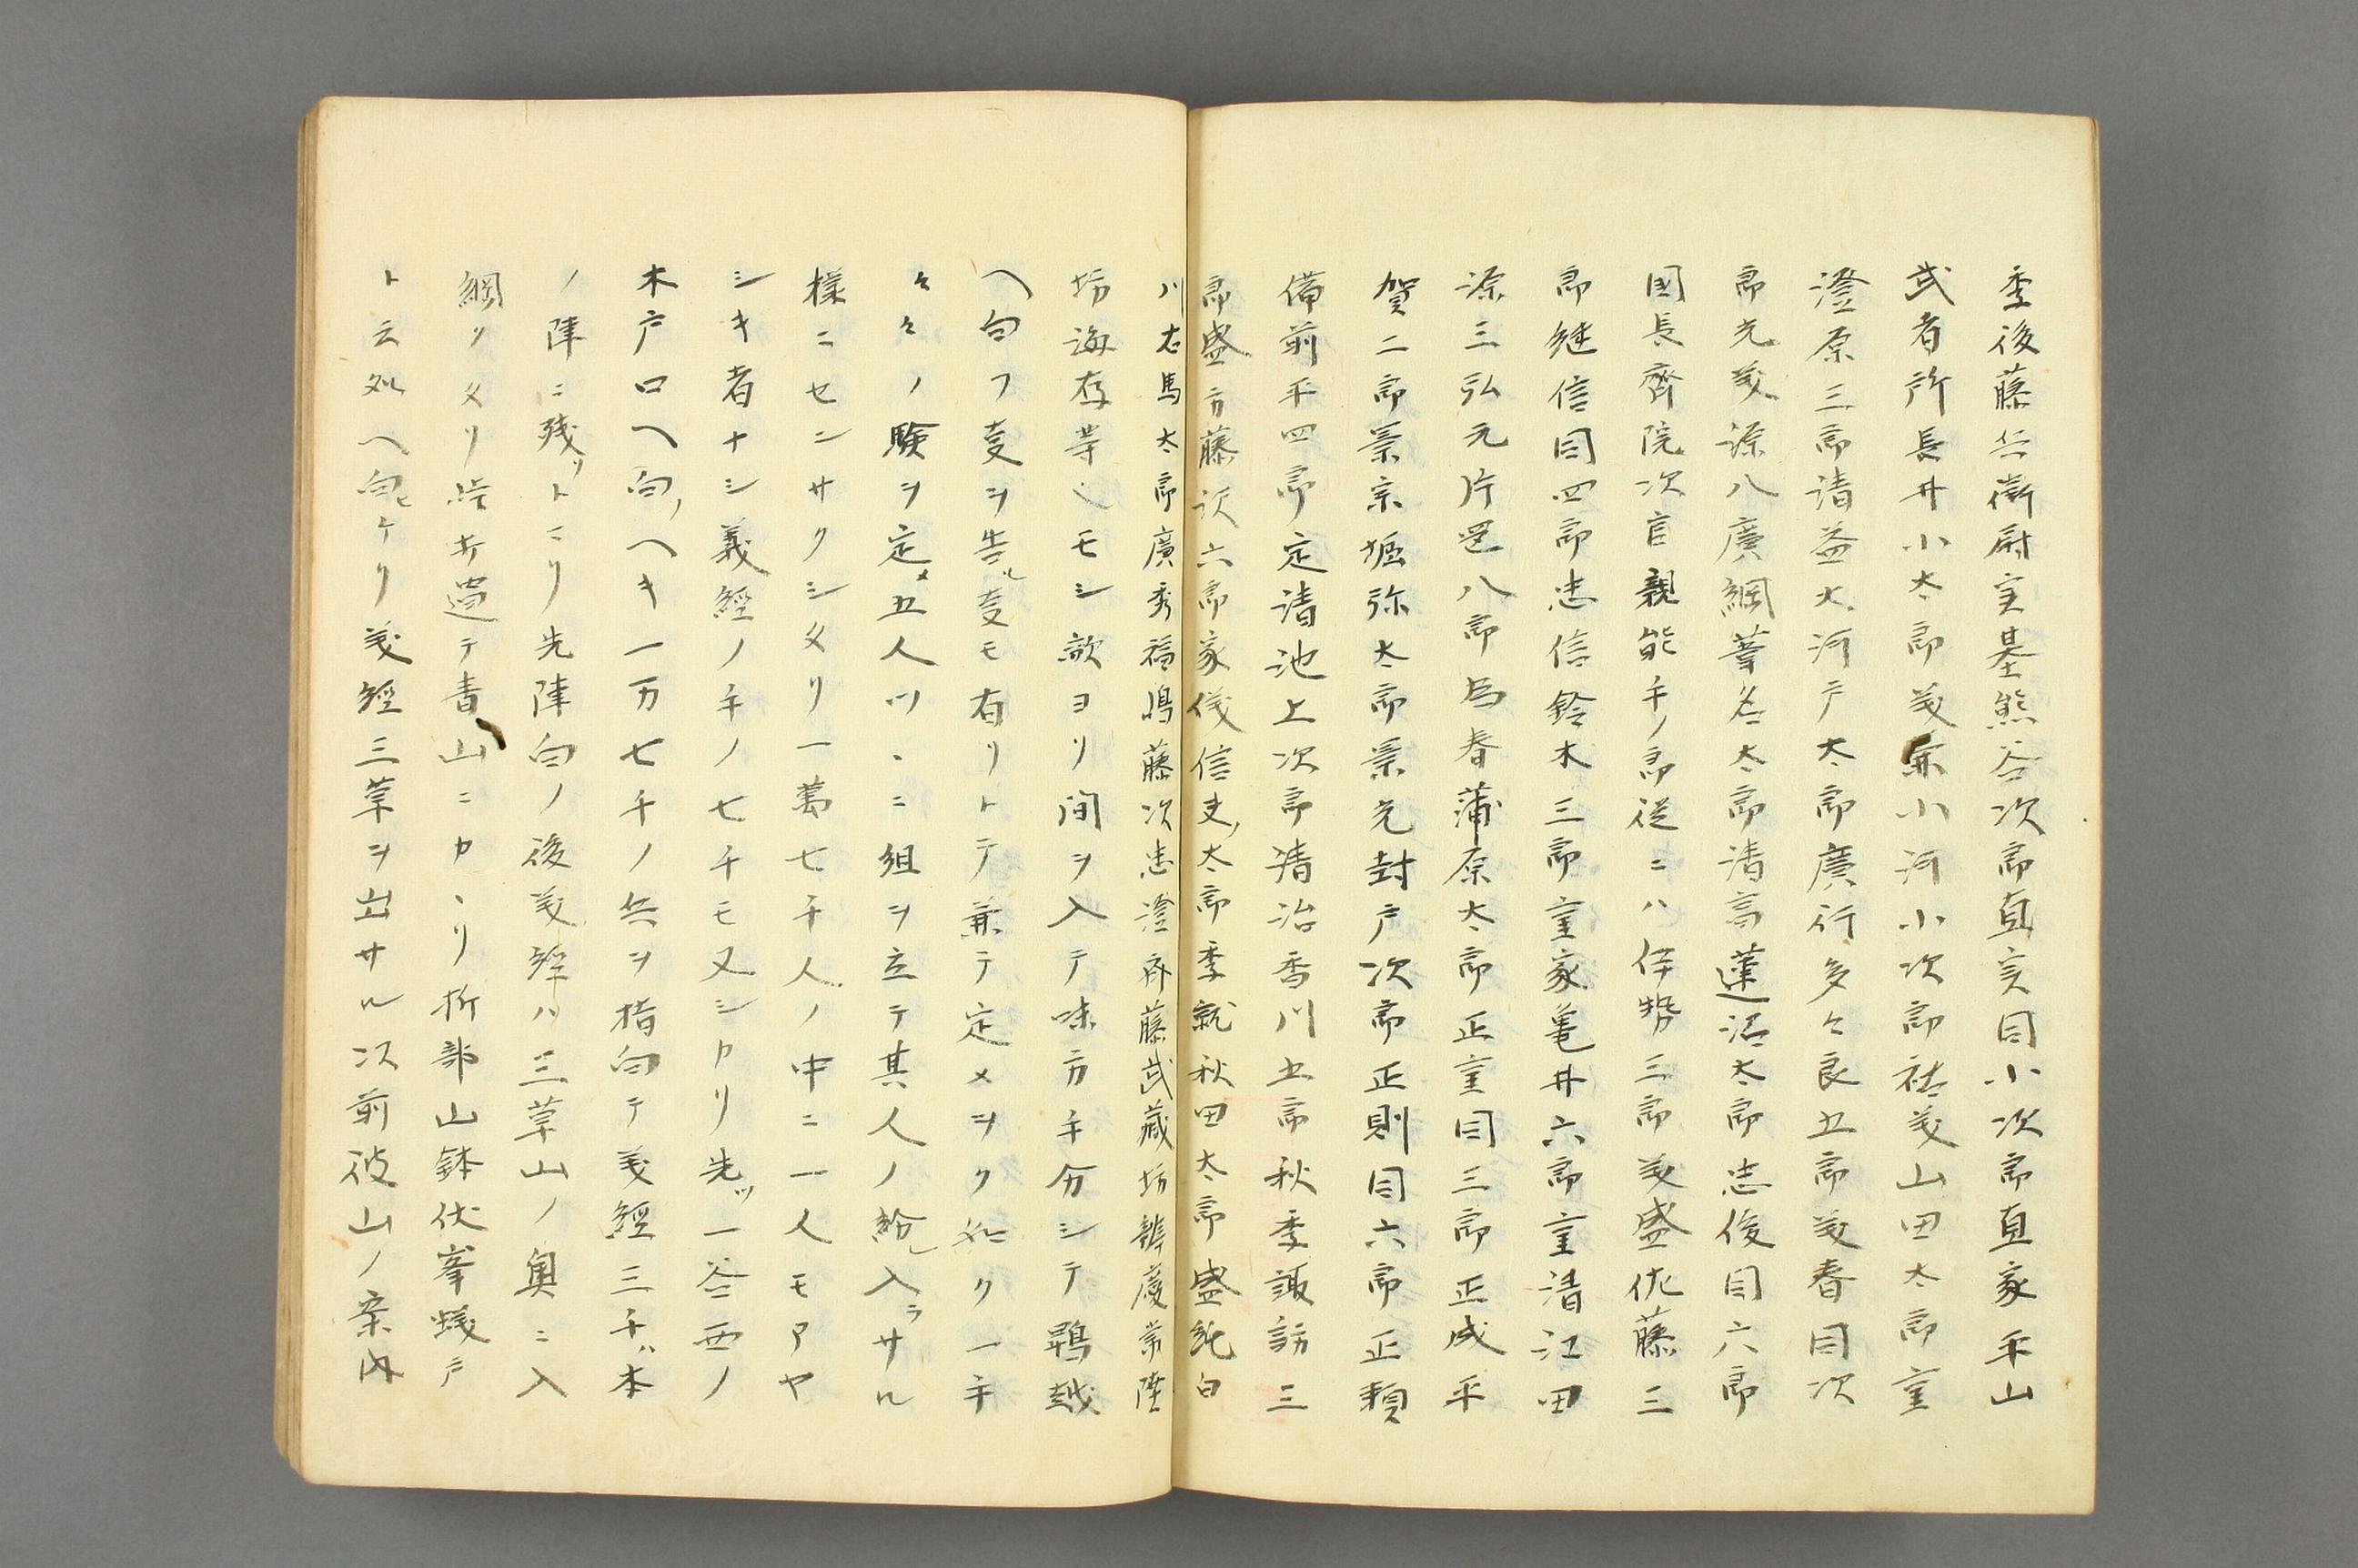 季後藤兵衛尉実基熊谷次郎直実同小次郎直家平山
武者所長井小太郎義兼小河小次郎祐義山田太郎重
澄原三郎清益大河戸太郎廣行多々良五郎義春同次
郎光義源八廣綱葦名太郎清高蓮沼太郎忠俊同六郎
国長齊院次官親能手ノ郎従ニハ伊勢三郎義盛佐藤三
郎継信同四郎忠信鈴木三郎重家亀井六郎重清江田
源三弘元片岡八郎為春蒲原太郎正重同三郎正成平
賀二郎景宗堀弥太郎景光封戸次郎正則同六郎正頼
備前平四郎定清池上次郎清治香川五郎秋季諏訪三
郎盛方藤沢六郎家儀信夫ノ太郎季就秋田太郎盛純白
川右馬太郎廣秀福嶋藤次忠澄斉藤武蔵坊辨慶常陸
坊海存等也モシ敵ヨリ間ヲ入テ味方手分シテ鵯越
ヘ向フ事ヲ告ル事モ有リトテ兼テ定メヲク如ク一手
々々ノ験ヲ定メ五人ツヽニ組ヲ立テ其人ノ紛レ入ラサル
様ニセンサクシタリ一萬七千人ノ中ニ一人モアヤ
シキ者ナシ義經ノ手ノ七千モ又シカリ先ツ一谷西ノ
木戸口ヘ向ノヘキ一万七千ノ兵ヲ指向テ義經三千ハ本
ノ陣ニ残リトヽマリ先陣向ノ後義經ハ三草山ノ奥ニ入
綱リタリ峠ヲ過テ書山ニカヽリ折部山鉢伏峯蟻戸
ト云処ヘ向ヒケリ義經三草ヲ出サル次前彼山ノ案内